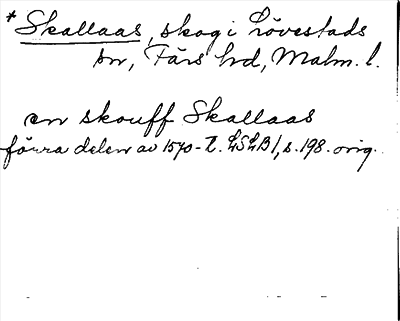 * Skallaas, skog i Lövestads
sn, Färs hd, Malm. l.
en skouff Skallaas
förra delen av 1570-t. LSLB 1, s. 198. orig.